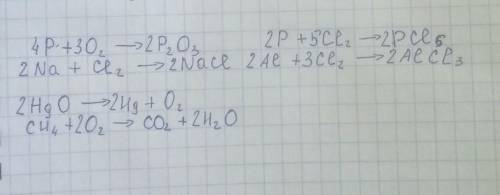 4P + 3O₂ → 2P₂O₃    2P + 5Cl₂ → 2PCl₅
2Na + Cl₂ → 2NaCl    2Al + 3Cl₂ → 2AlCl₃
2HgO → 2Hg + O₂
CH₄ + 2O₂ → CO₂ + 2H₂O